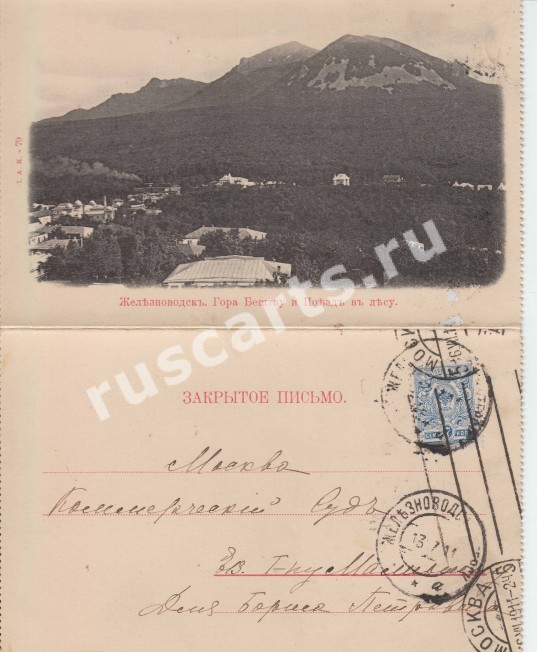 I. A. K. - 70
Желѣзноводскъ. Гора Бештау и Поѣздъ въ лѣсу.
ruscarts.ru
ЗАКРЫТОЕ ПИСЬМО.
Москва
Коммерческій Судъ
Для Бориса
ЖЕЛѢЗНОВОДС
13. 7. 11
а
МОСКВА